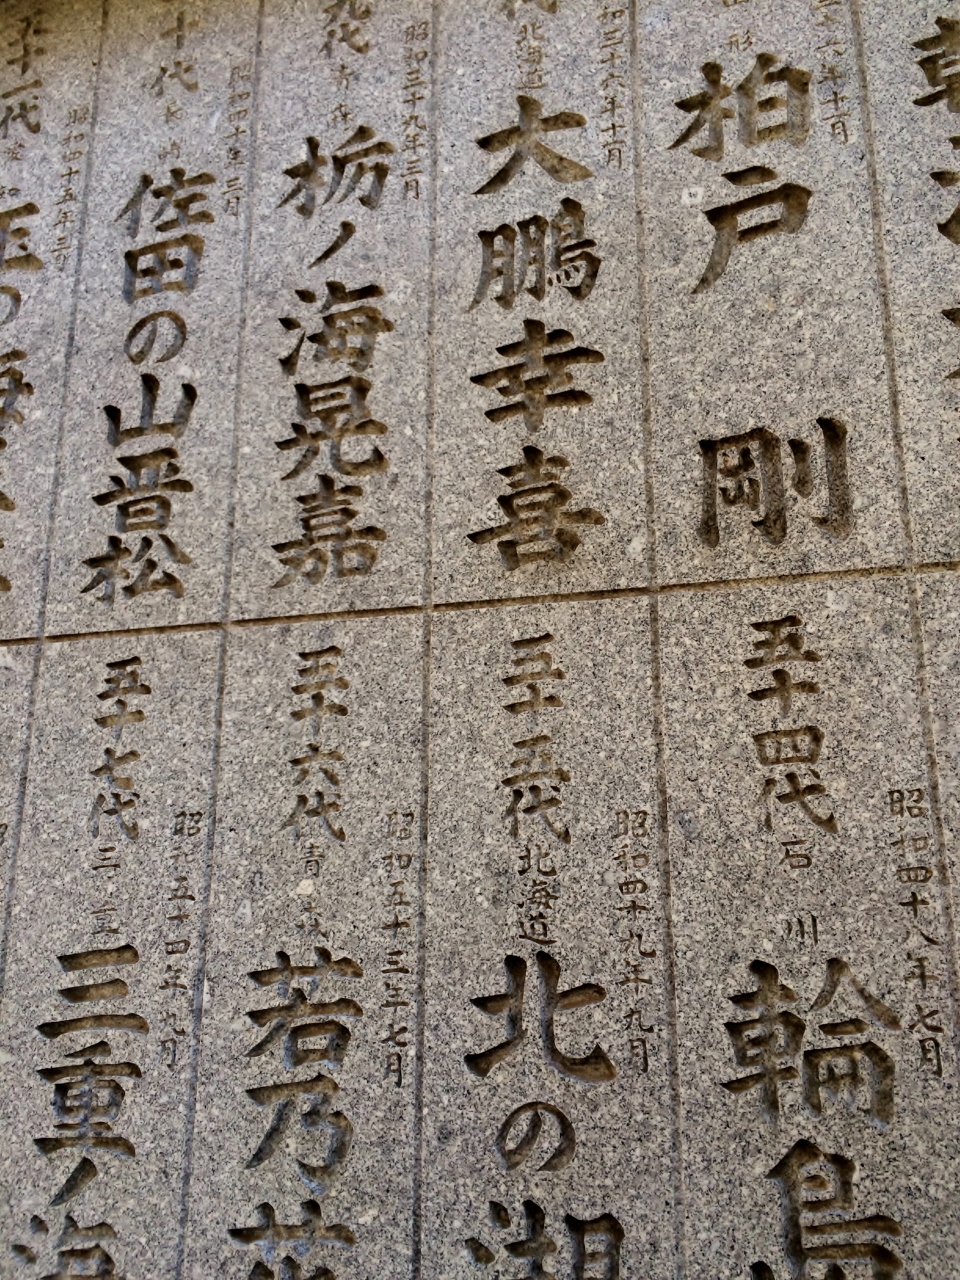 形
柏戸 剛
三十六年十一月
大鵬幸喜
北海道
和三十六年十一月
九代 青森
栃ノ海晃嘉
昭和三十九年三月
十代 長崎
佐田の山晋松
昭和四十年三月
十一代
昭和四十五年三月
五十四代 石川
輪島
昭和四十八年七月
五十五代 北海道
北の湖
昭和四十九年九月
五十六代 青森
若乃花
昭和五十三年七月
五十七代 三重
三重ノ海
昭和五十四年九月